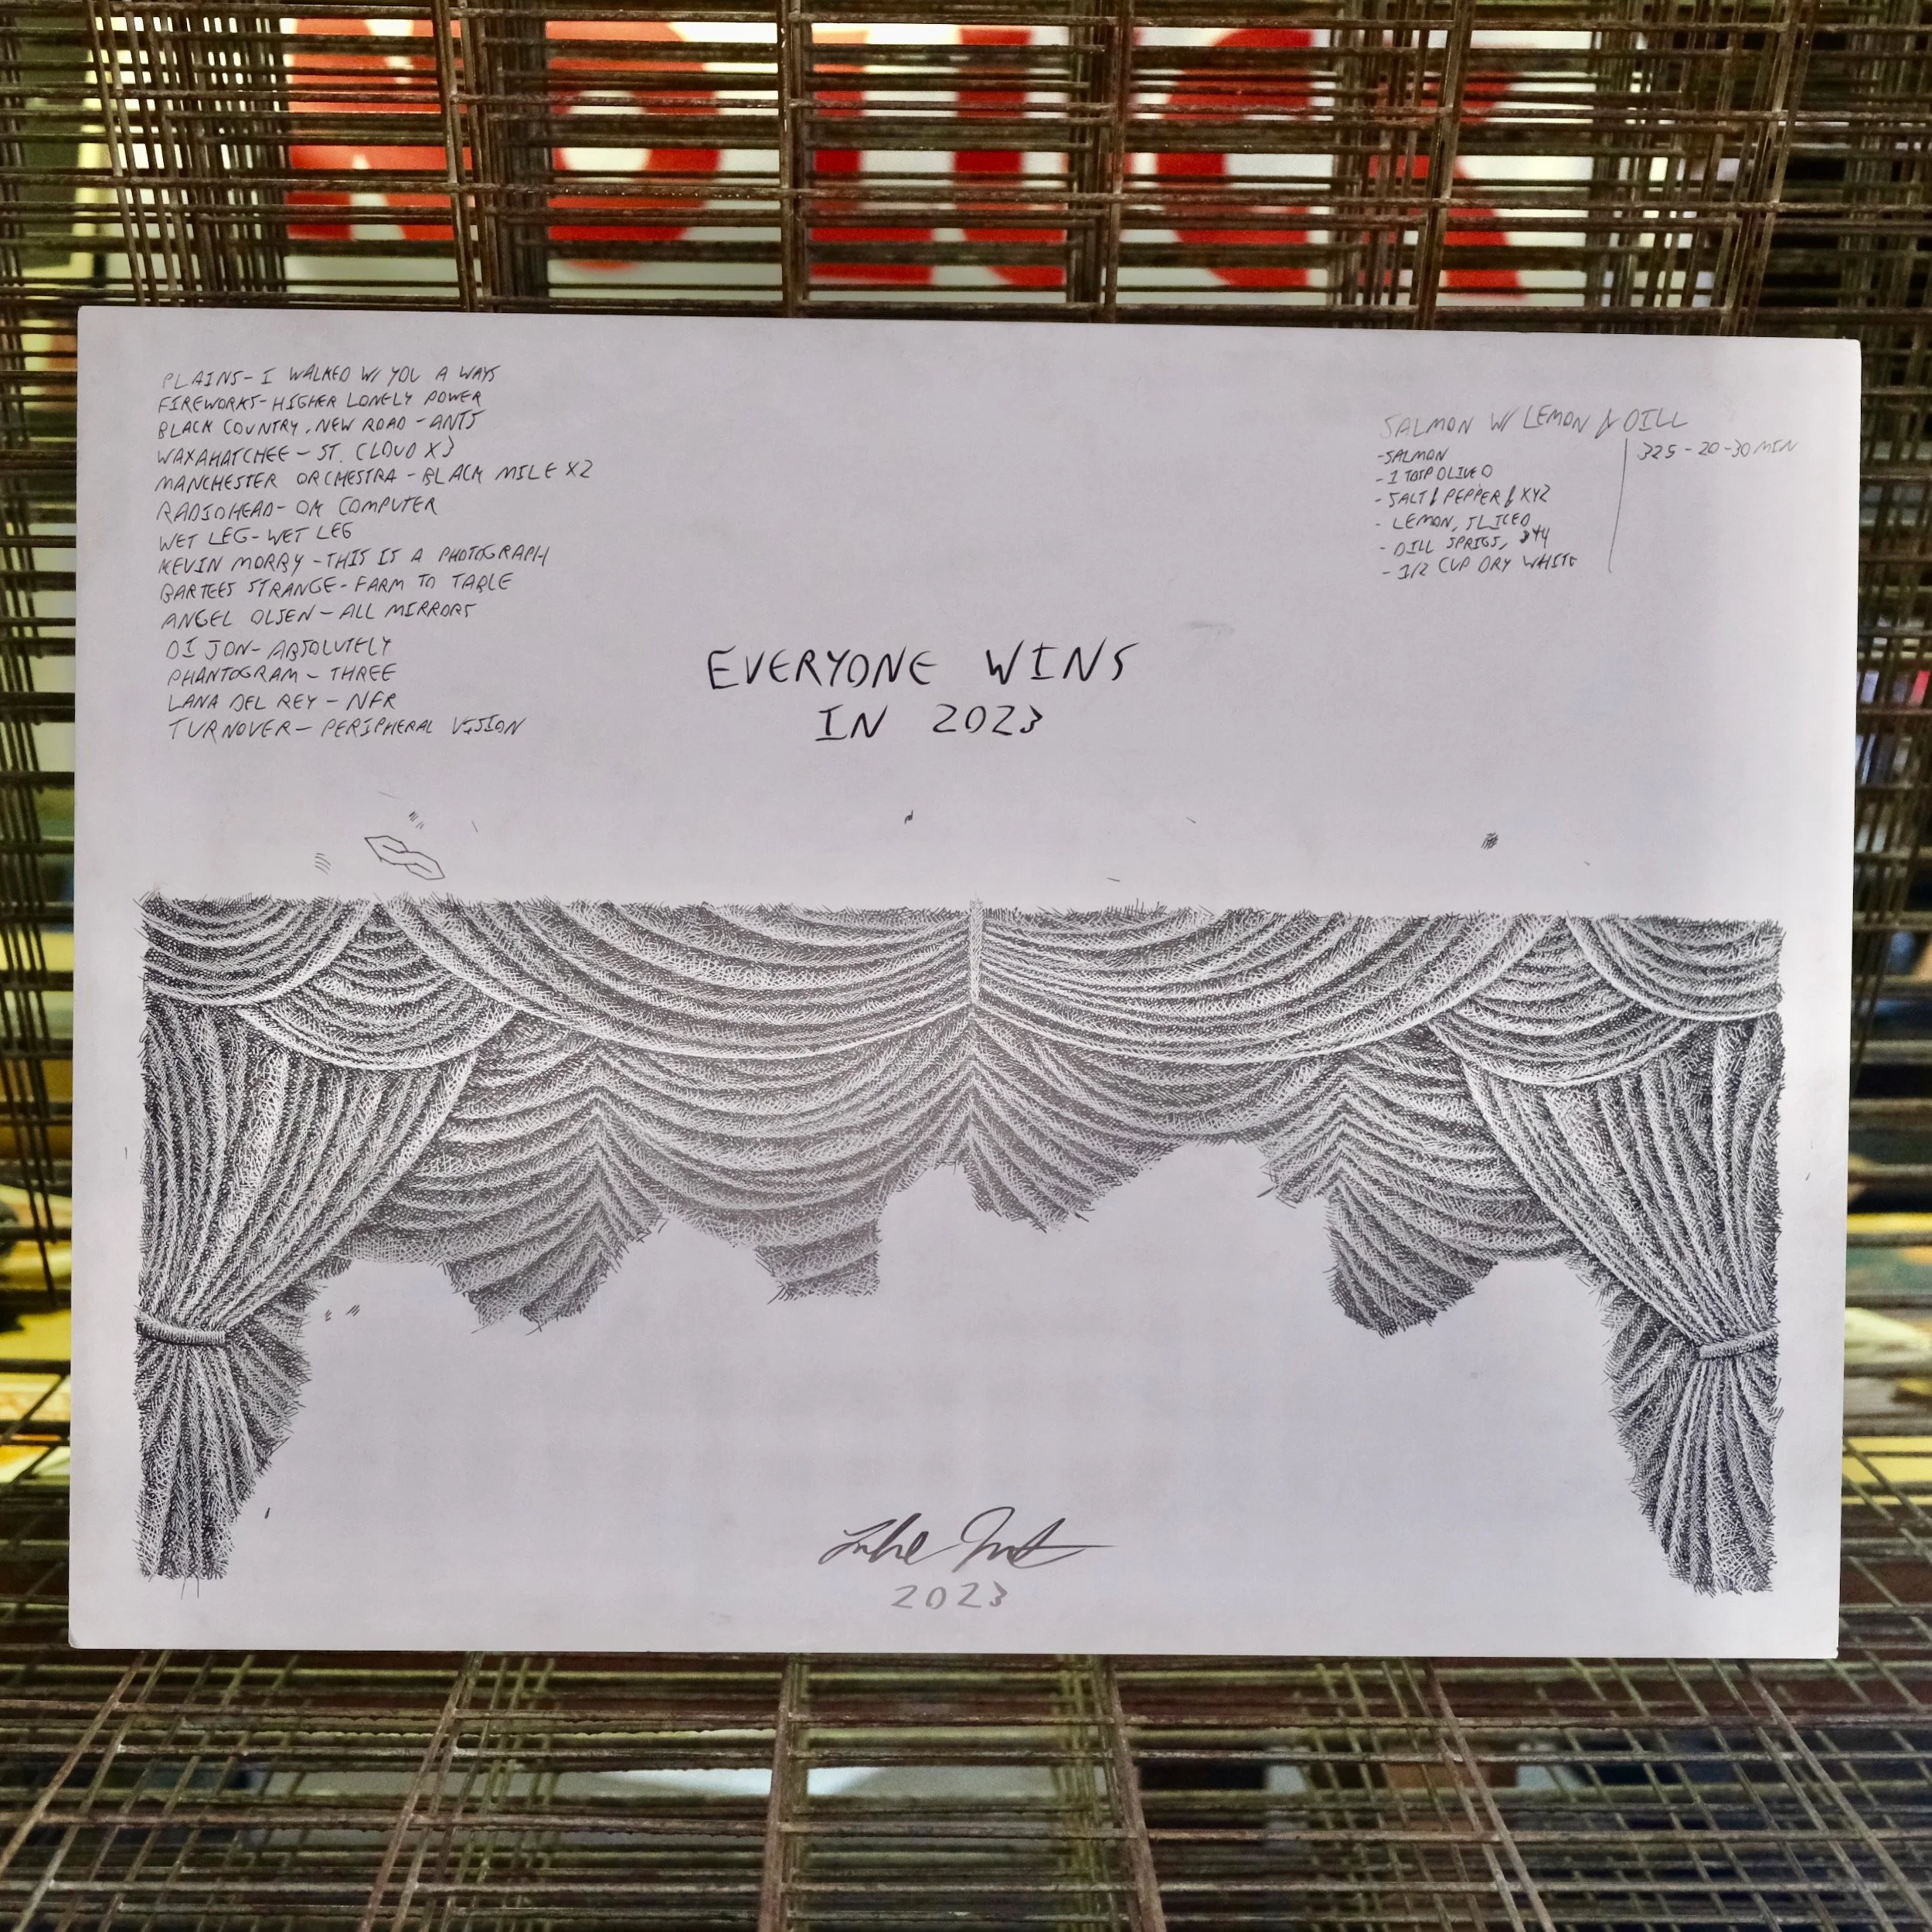 PLAINS- I WALKED W/ YOU A WAYS
FIREWORKS- HIGHER LONELY POWER
BLACK COUNTRY, NEW ROAD - ANTS
WAXAHATCHEE - ST. CLOUD X3
MANCHESTER ORCHESTRA - BLACK MILE X2
RADIOHEAD- OK COMPUTER
WET LEG- WET LEG
KEVIN MORBY - THIS IS A PHOTOGRAPH
BARTEES STRANGE- FARM TO TABLE
ANGEL OLSEN - ALL MIRRORS
DIJON- ABSOLUTELY
PHANTOGRAM - THREE
LANA DEL REY - NFR
TURNOVER - PERIPHERAL VISION
SALMON W/ LEMON & DILL
-SALMON
- 1 TBSP OLIVE O
- SALT & PEPPER & XYZ
- LEMON, SLICED
- DILL SPRIGS,
- 1/2 CUP DRY WHITE
325 - 20-30 MIN
EVERYONE WINS
IN 2023
Luke
2023